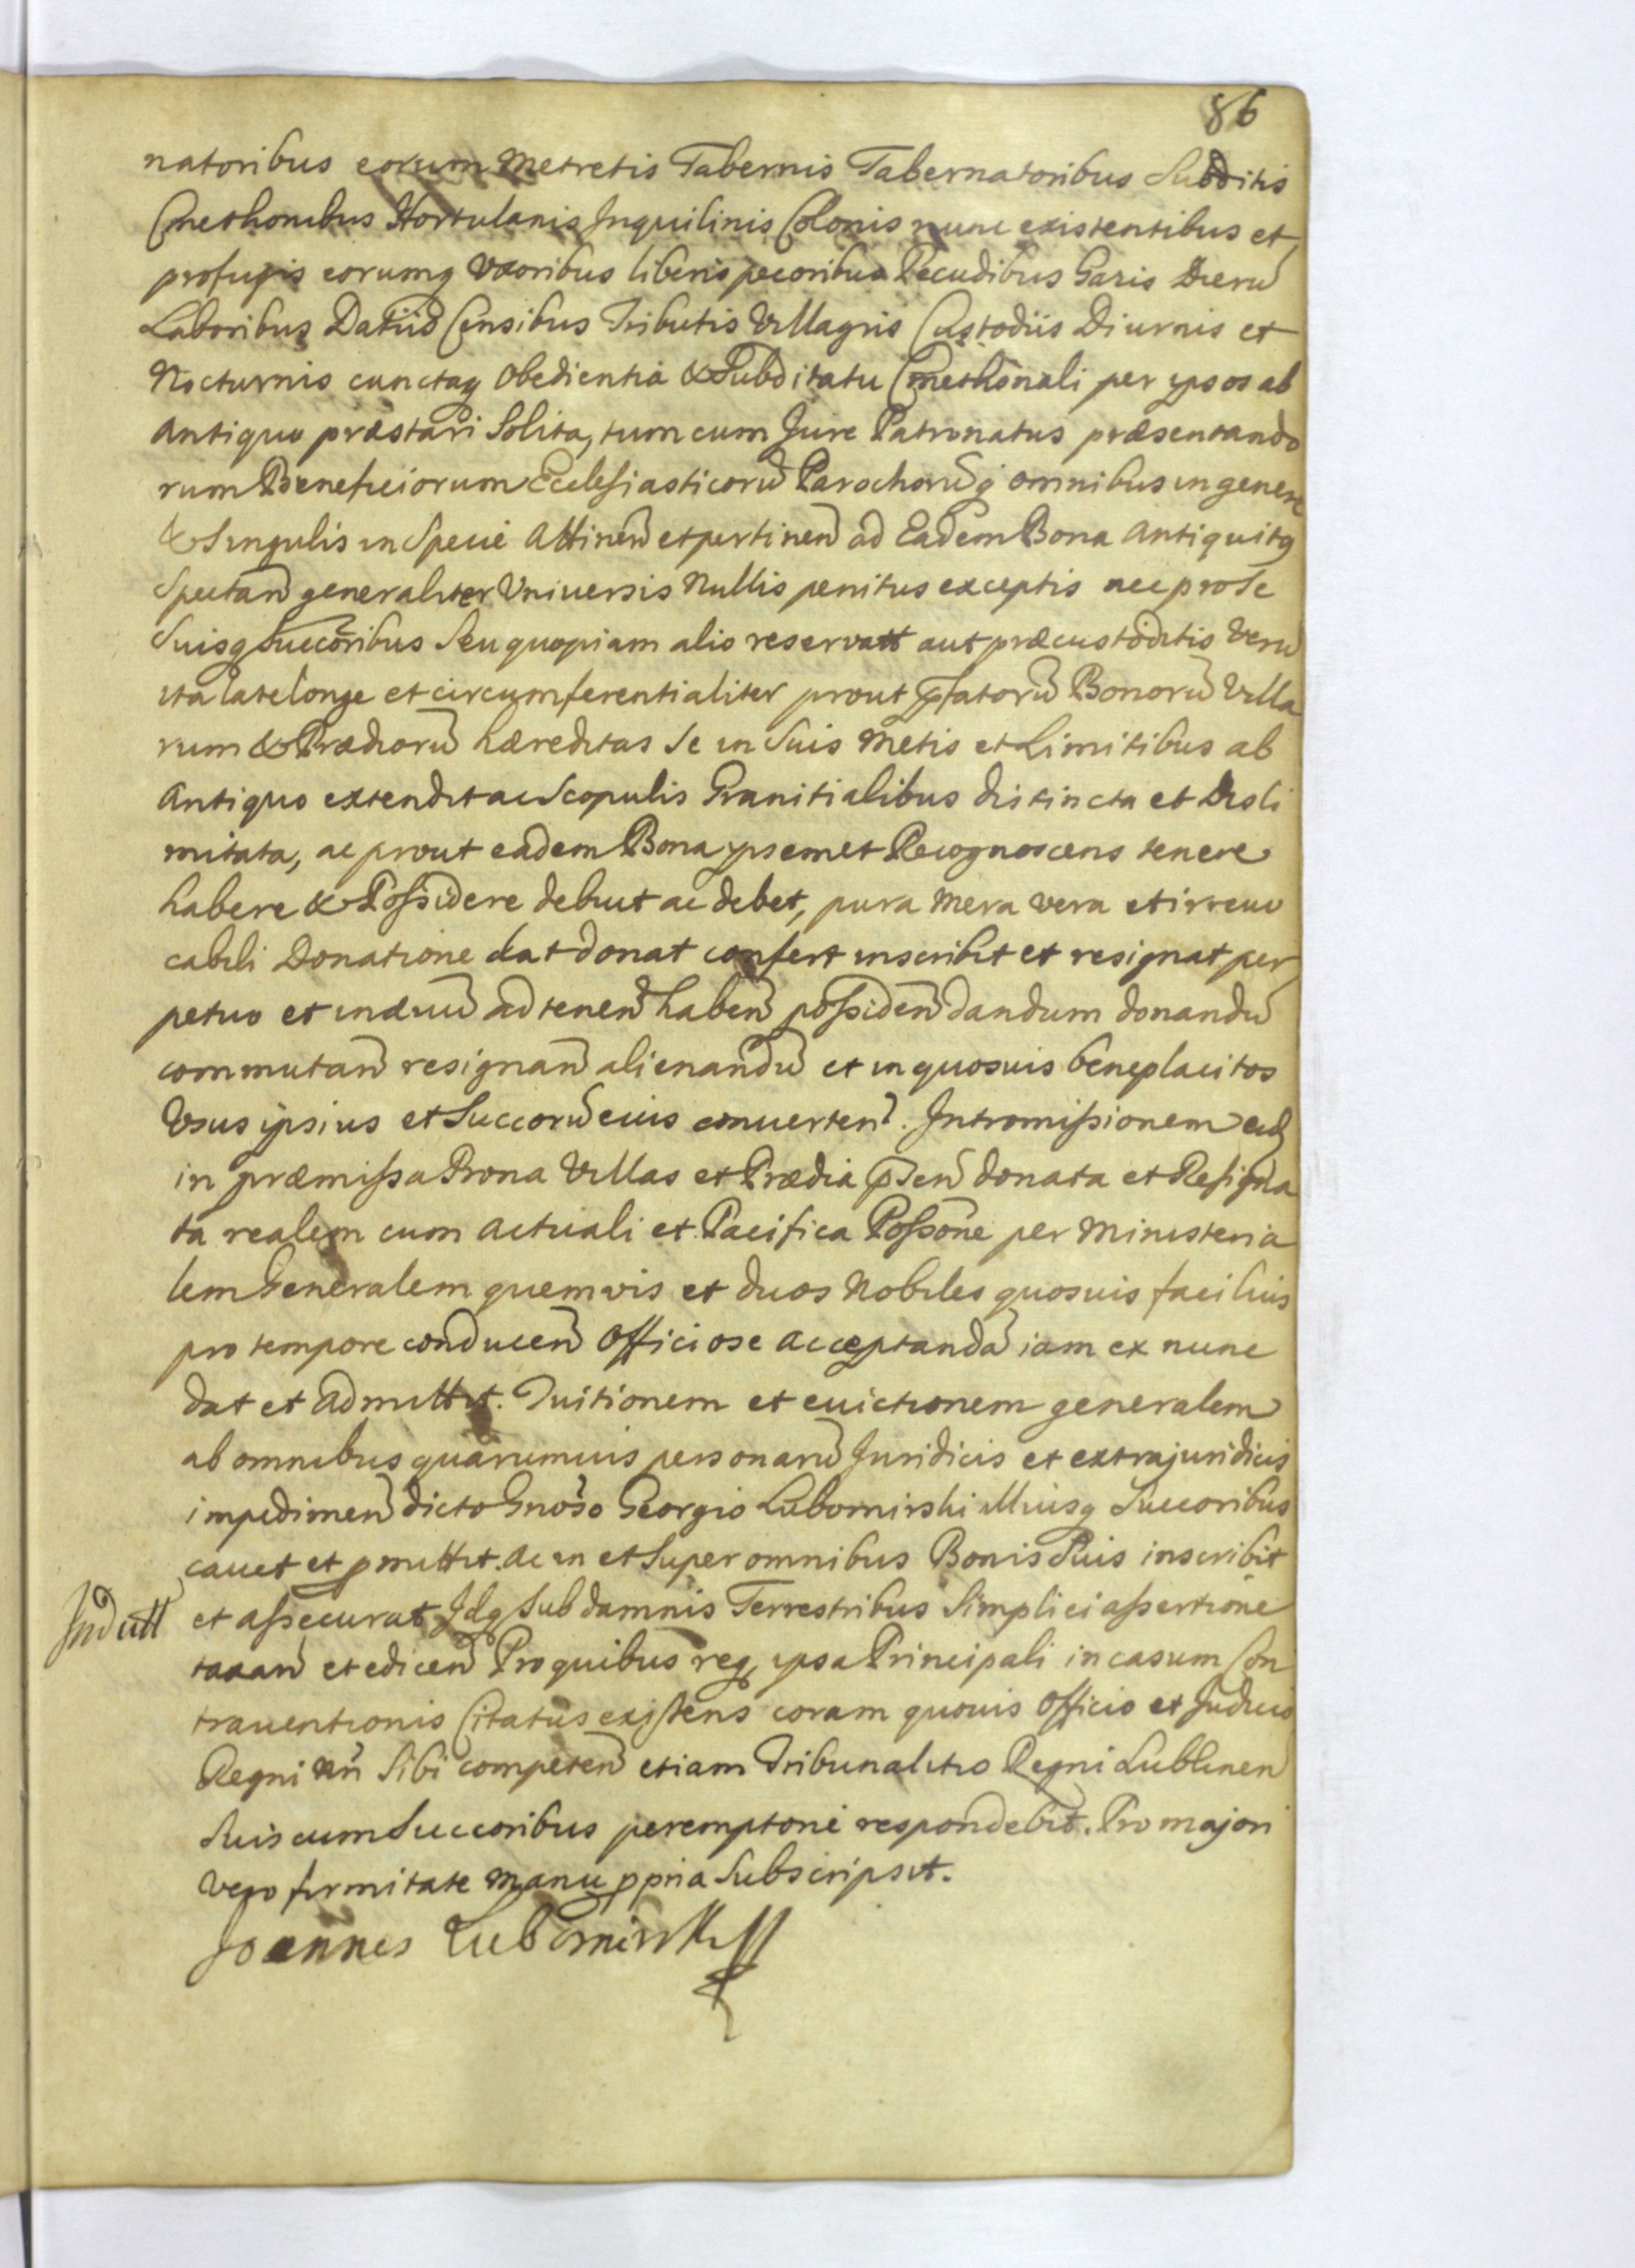 86
natoribus eorum Metretis Tabernis Tabernatoribus Subditis
Cmethonibus Hortulanis Inquilinis Colonis nunc existentibus et
profugis eorumq Uxoribus liberis pecoribus Pecudibus Gazis Dierũ
Laboribus Datiis Censibus Tributis Villagiis Custodiis Diurnis et
Nocturnis cunctaq Obedientia & Subditatu Cmethonali per ipsos ab
Antiquo præstari Solita, tum cum Jure Patronatus præsentando
rum Beneficiorum Ecclesiasticorũ Parochorũq omnibus in genere
& Singulis in Specie Attinen̄ et pertinen̄ ad Eadem Bona Antiquitq
Spectan̄ generaliter Vniuersis Nullis penitus exceptis nec pro Se
Suisq Succoribus Seu quopiam alio reservatt aut præcustoditis Verũ
ita late longe et circumferentialiter prout pfatorũ Bonorũ Villa
rum & Prædiorũ hæreditas Se in Suis Metis et Limitibus ab
Antiquo extendit ac Scopulis Granitialibus distincta et Disli
mitata, ac prout eadem Bona ipsemet Recognoscens tenere
habere & Possidere debuit ac debet, pura Mera vera et irreuo
cabili Donatione dat donat confert inscribit et resignat per
petuo et in æuũ ad tenen̄ haben̄ possiden̄ dandum donandũ
commutan̄ resignan̄ alienandũ et in quosuis beneplacitos
Usus ipsius et Succorũ eius conuerten̄. Intromissionem eidq
in præmissa Bona Villas et Prædia pñsen̄ donata et Resigna
ta realem cum actuali et Pacifica Possone per Ministeria
lem Generalem quemvis et duos Nobiles quosuis facilius
pro tempore conducen̄ Officiose acceptandã iam ex nunc
dat et admittit. Tuitionem et euictionem generalem
ab omnibus quarumuis personarũ Juridicis et extrajuridicis
impedimen̄ dicto Gnoso Georgio Lubomirski Illiusq Succoribus
cauet et pmittit. Ac in et Super omnibus Bonis Suis inscribit
et assecurat Idq Sub damnis Terrestribus Simplici assertione
taxan̄ et edicen̄ Pro quibus req ipsa Principali in casum Con
trauentionis Citatus existens coram quouis Officio et Judicio
Regni nñ Sibi competen̄ etiam Tribunalitio Regni Lublinen̄
Suis cum Succoribus peremptorie respondebit. Pro majori
Vero firmitate Manu ppria Subscripsit.
Joannes Lubomirski